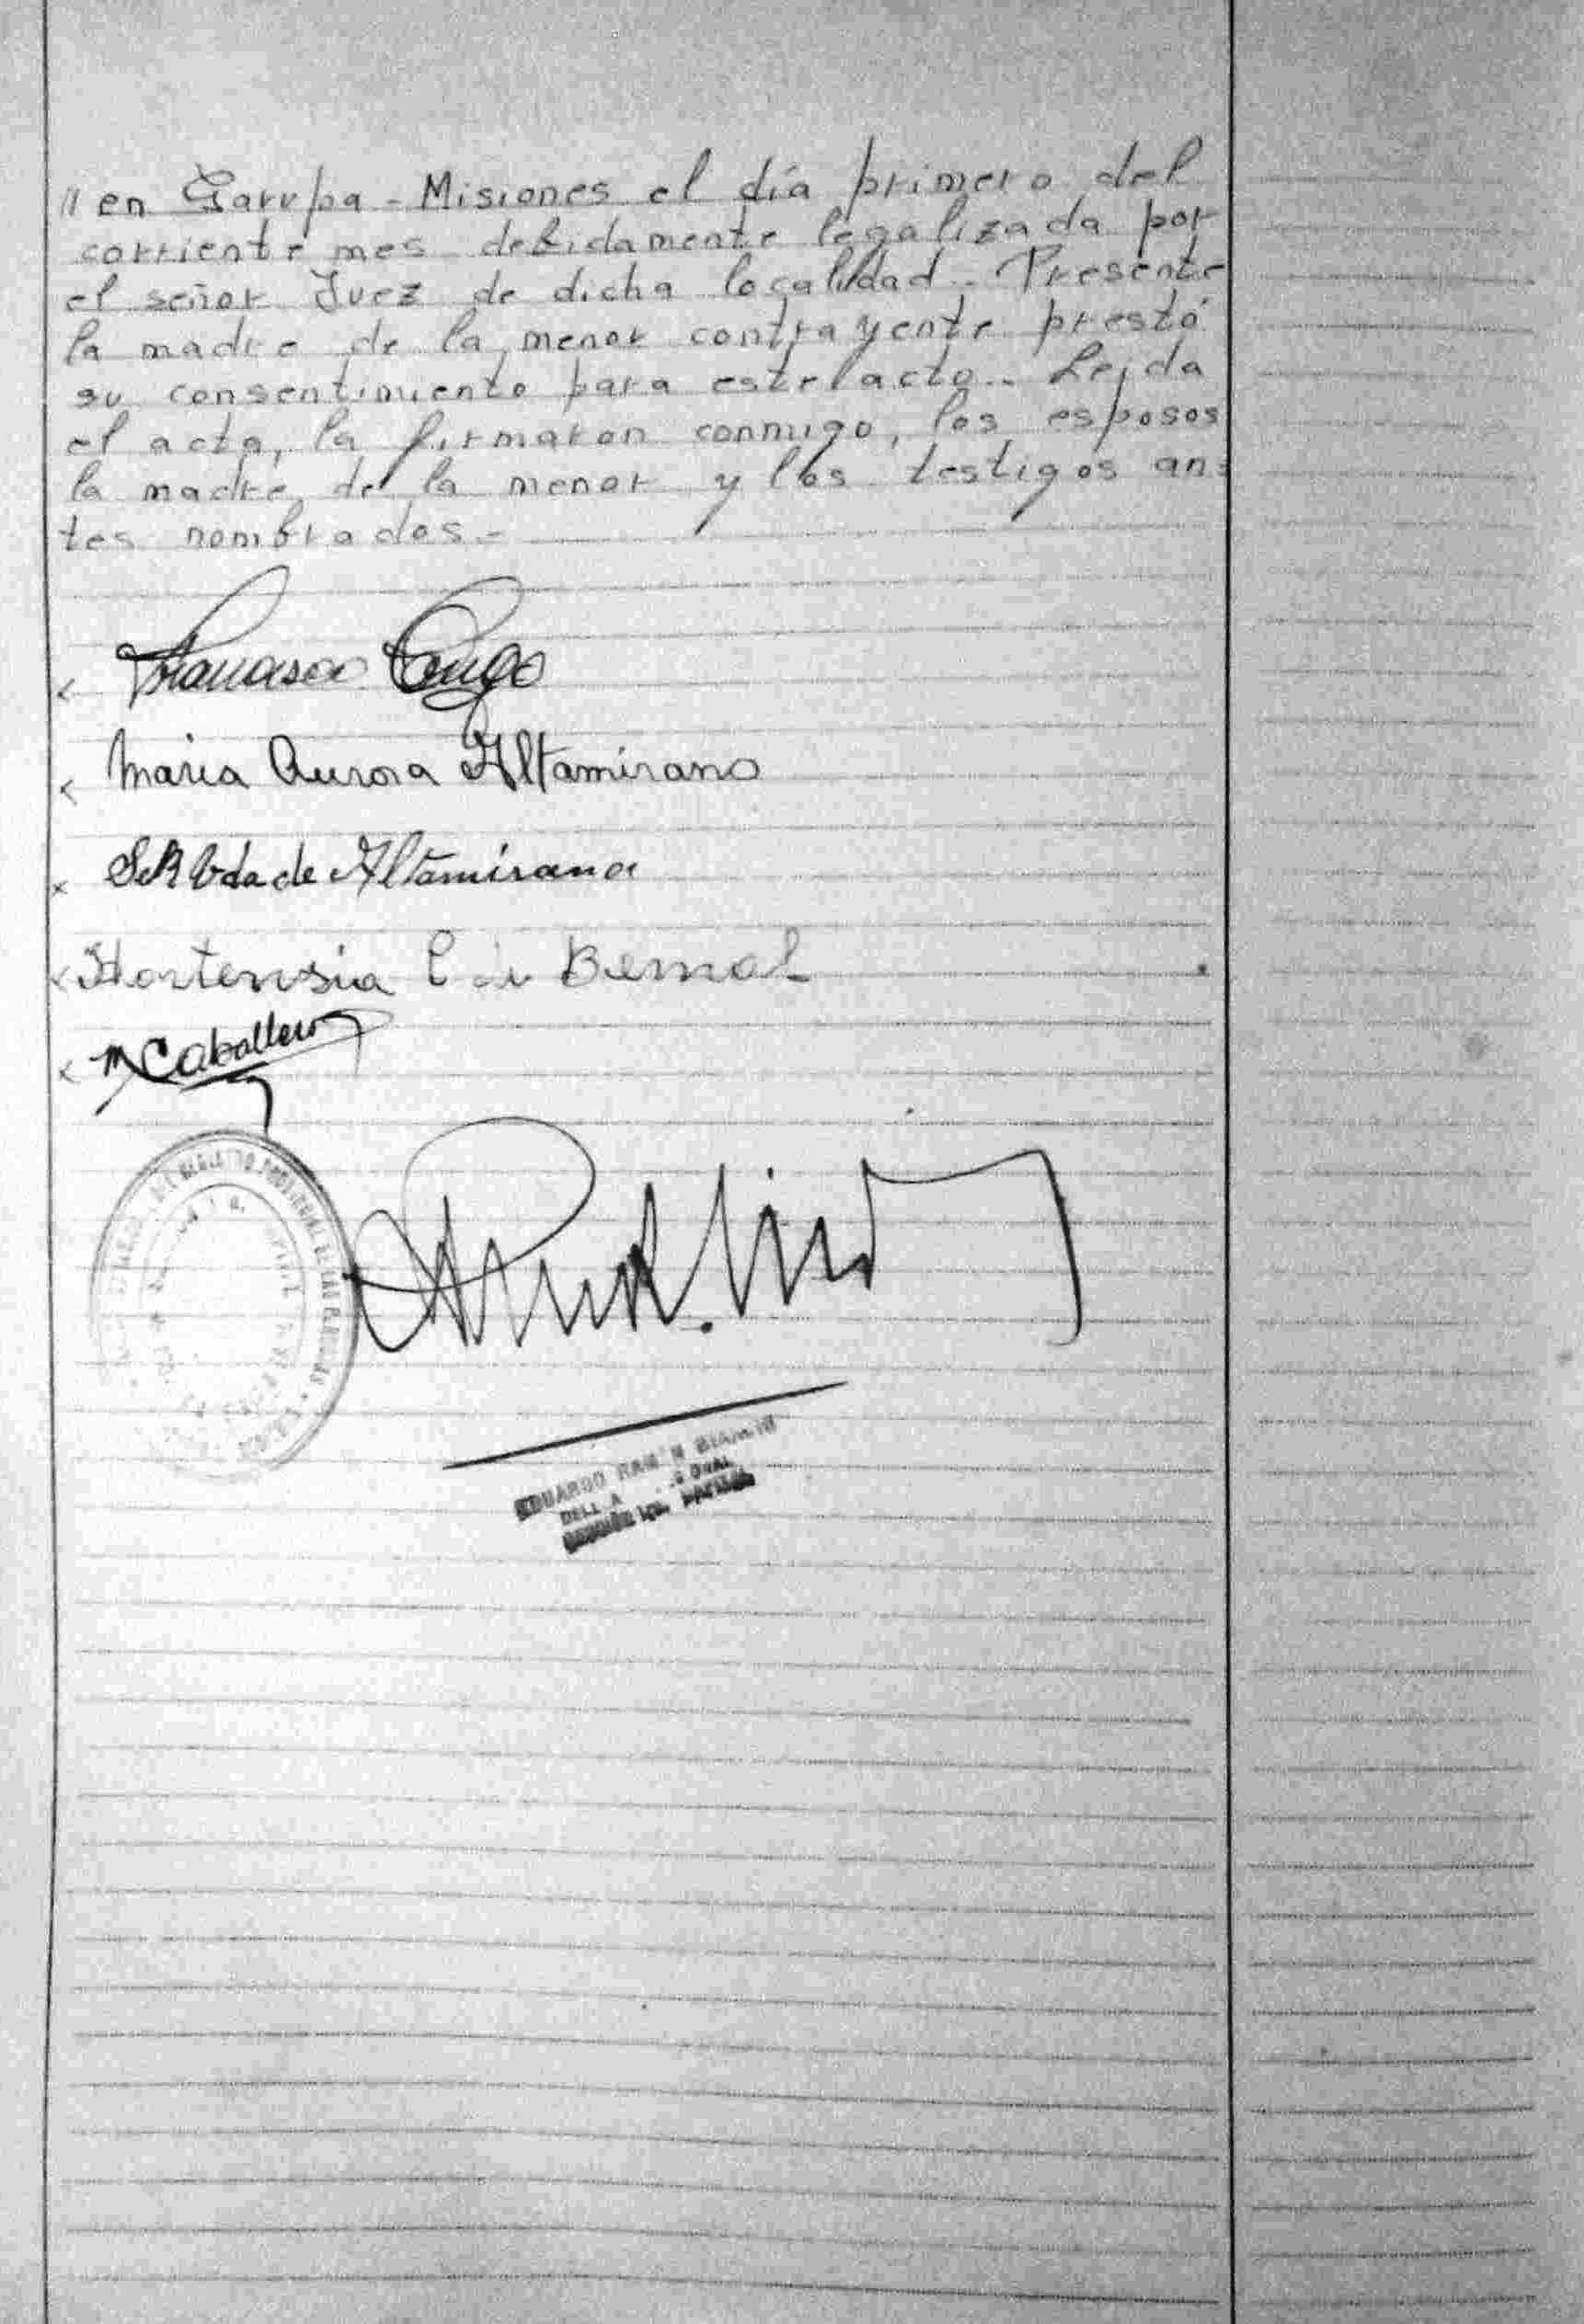 // en Garupa - Misiones el día primero del
corriente mes debidamente legalizada por
el señor Juez de dicha localidad.- Presente
la madre de la menor contrayente prestó
su consentimiento para este acto.- Leida
el acta, la firmaron conmigo, los esposos
la madre de la menor y los testigos an=
tes nombrados.-
Francisco
Maria Aurora Altamirano
Vda de Altamirano
Hortensia C de Bernal
M Caballero
REGISTRO PROVINCIAL DE LAS PERSONAS
EDUARDO RAMON